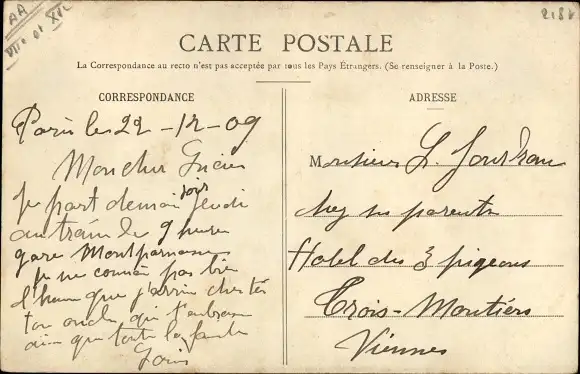 AA
218
CARTE POSTALE
La Correspondance au recto n'est pas acceptée par tous les Pays Étrangers. (Se renseigner à la Poste.)
CORRESPONDANCE
Paris les 22-12-09
Mon cher
Je part demain jour jeudi
au train de 9 heures
gare Montparnasse
je ne connais pas bien
l'heure que j'arrive chez tes
ton oncle qui t'embrasse
ainsi que toute la famille
Louis
ADRESSE
Monsieur L.
chez ses parents
Hotel des 3 pigeons
Trois-Moutiers
Viennes